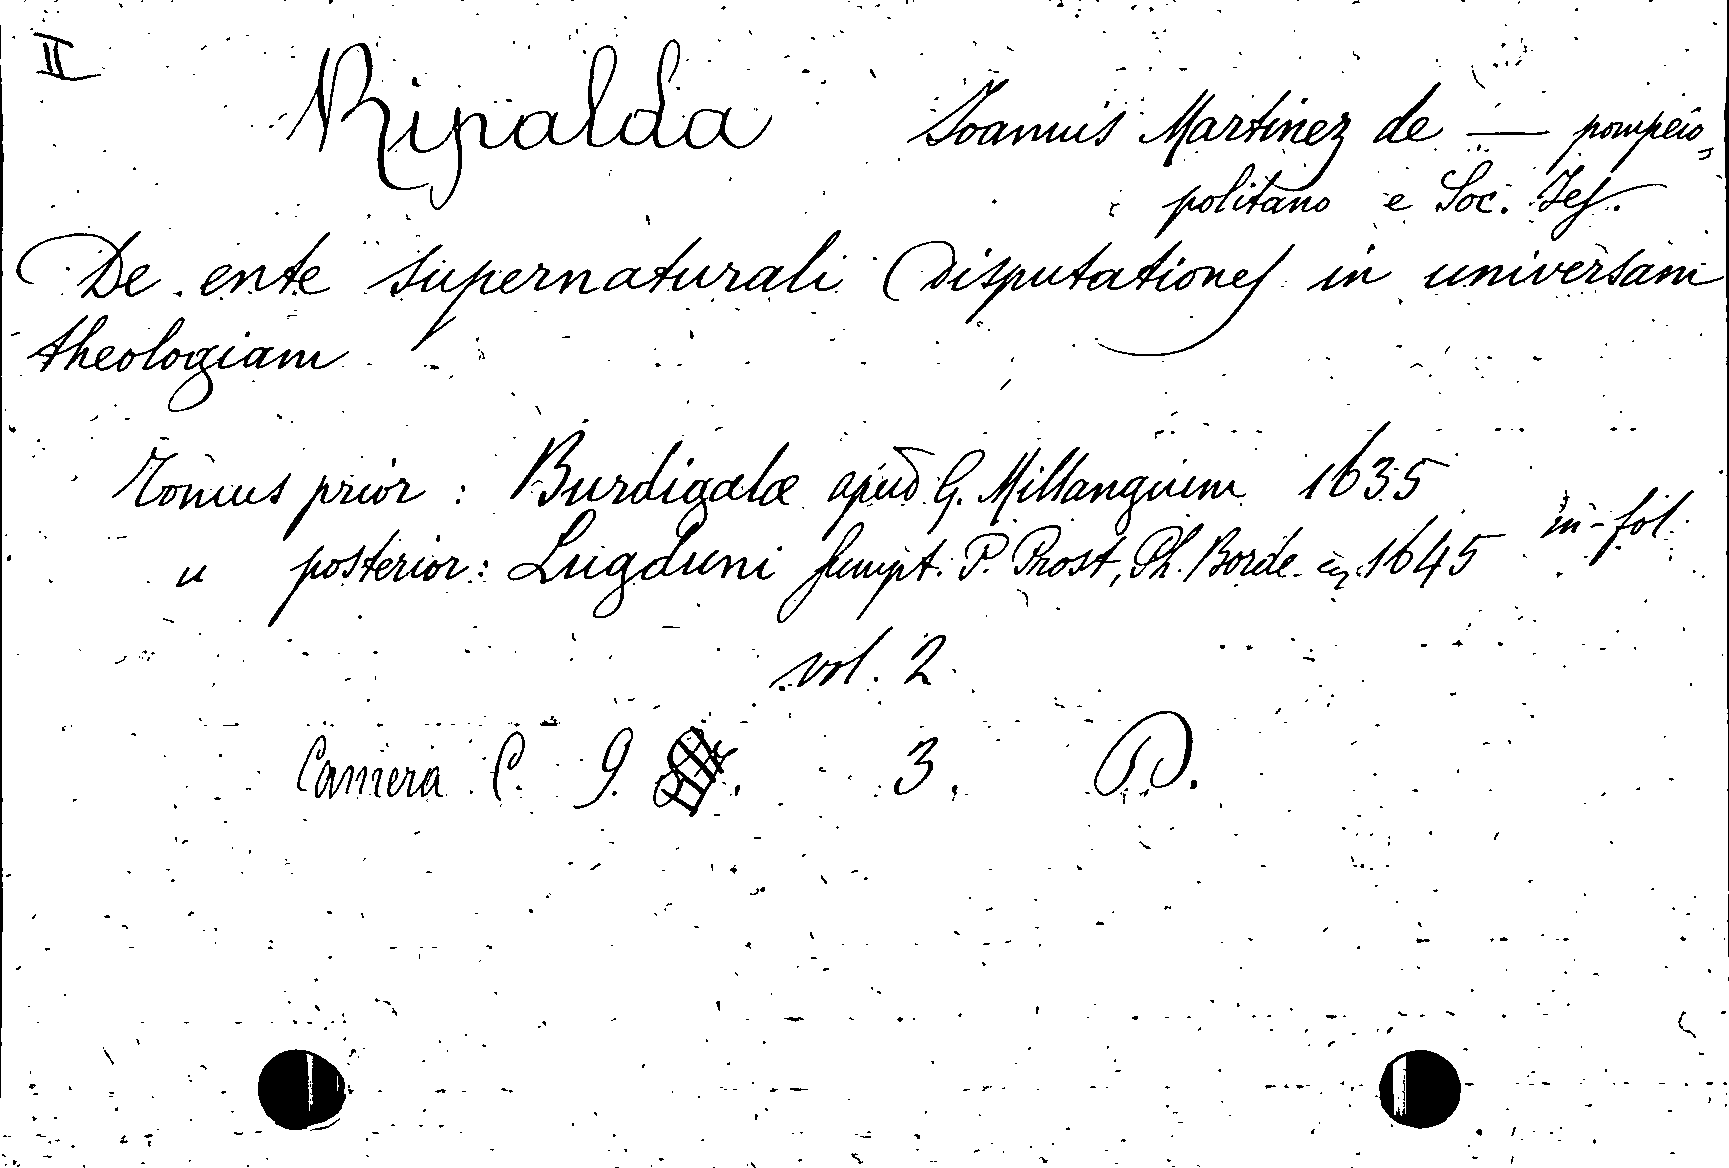 II
Ripalda Joannis Martinez de — pompeio„
politano e Soc. Jes.
De ente supernaturali Disputationes in universam
theologiam
Tomus prior : Burdigalæ apud G. Millangium 1635
in-fol.
" posterior : Lugduni sumpt. P. Prost, Ph. Borde 1645
vol. 2
Camera C. 9. 3. D.